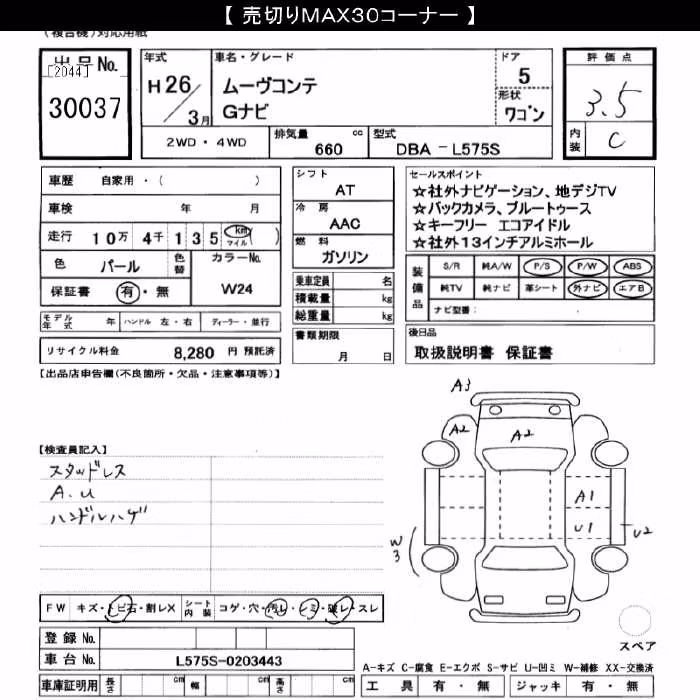 【 売切りMAX30コーナー 】
(複合機)対応用紙
出品No.
[2044]
30037
年式
H26/3月
車名・グレード
ムーヴコンテ
Gナビ
ドア
5
形状
ワゴン
2WD・4WD
排気量 cc
660
型式
DBA－L575S
評価点
3.5
内装
C
車歴 自家用・( )
車検 年 月
走行 10万 4千 135 km マイル ( )
色 パール 色替
カラーNo.
W24
保証書 有・無
シフト
AT
冷房
AAC
燃料
ガソリン
乗車定員 名
積載量 kg
総重量 kg
セールスポイント
☆社外ナビゲーション、地デジTV
☆バックカメラ、ブルートゥース
☆キーフリー エコアイドル
☆社外13インチアルミホール
装備品
S/R 純A/W P/S P/W ABS
純TV 純ナビ 革シート 外ナビ エアB
ナビ型番：
モデル年式 年 ハンドル 左・右 ディーラー・並行
書類期限
月 日
後日品
取扱説明書 保証書
リサイクル料金 8,280 円 預託済
【出品店申告欄(不良箇所・欠品・注意事項等)】
【検査員記入】
スタッドレス
A.U
ハンドルハゲ
A3
A2
A2
A1
U1
U2
W3
FW キズ・トビ石・割レX シート内装 コゲ・穴・汚レ・シミ・破レ・スレ
登録No.
車台No. L575S-0203443
スペア
A-キズ C-腐食 E-エクボ S-サビ U-凹ミ W-補修 XX-交換済
車庫証明用 長さ cm 幅 cm 高さ cm
工具 有・無 ジャッキ 有・無